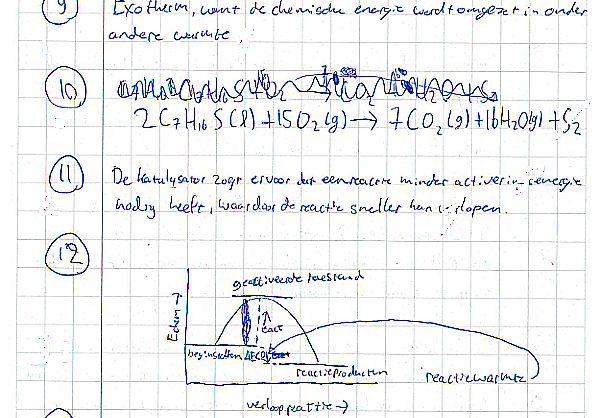 9 Exotherm, want de chemische energie wordt omgezet in onder
andere warmte.
10.
2 C7H16S (l) + 15 O2 (g) → 7 CO2 (g) + 16 H2O (g) + S2
11. De katalysator zorgt ervoor dat een reactie minder activerings energie
nodig heeft, waardoor de reactie sneller kan verlopen.
12
geactiveerde toestand
Echem →
Eact
beginstoffen
reactieproducten
reactiewarmte
verloop reactie →